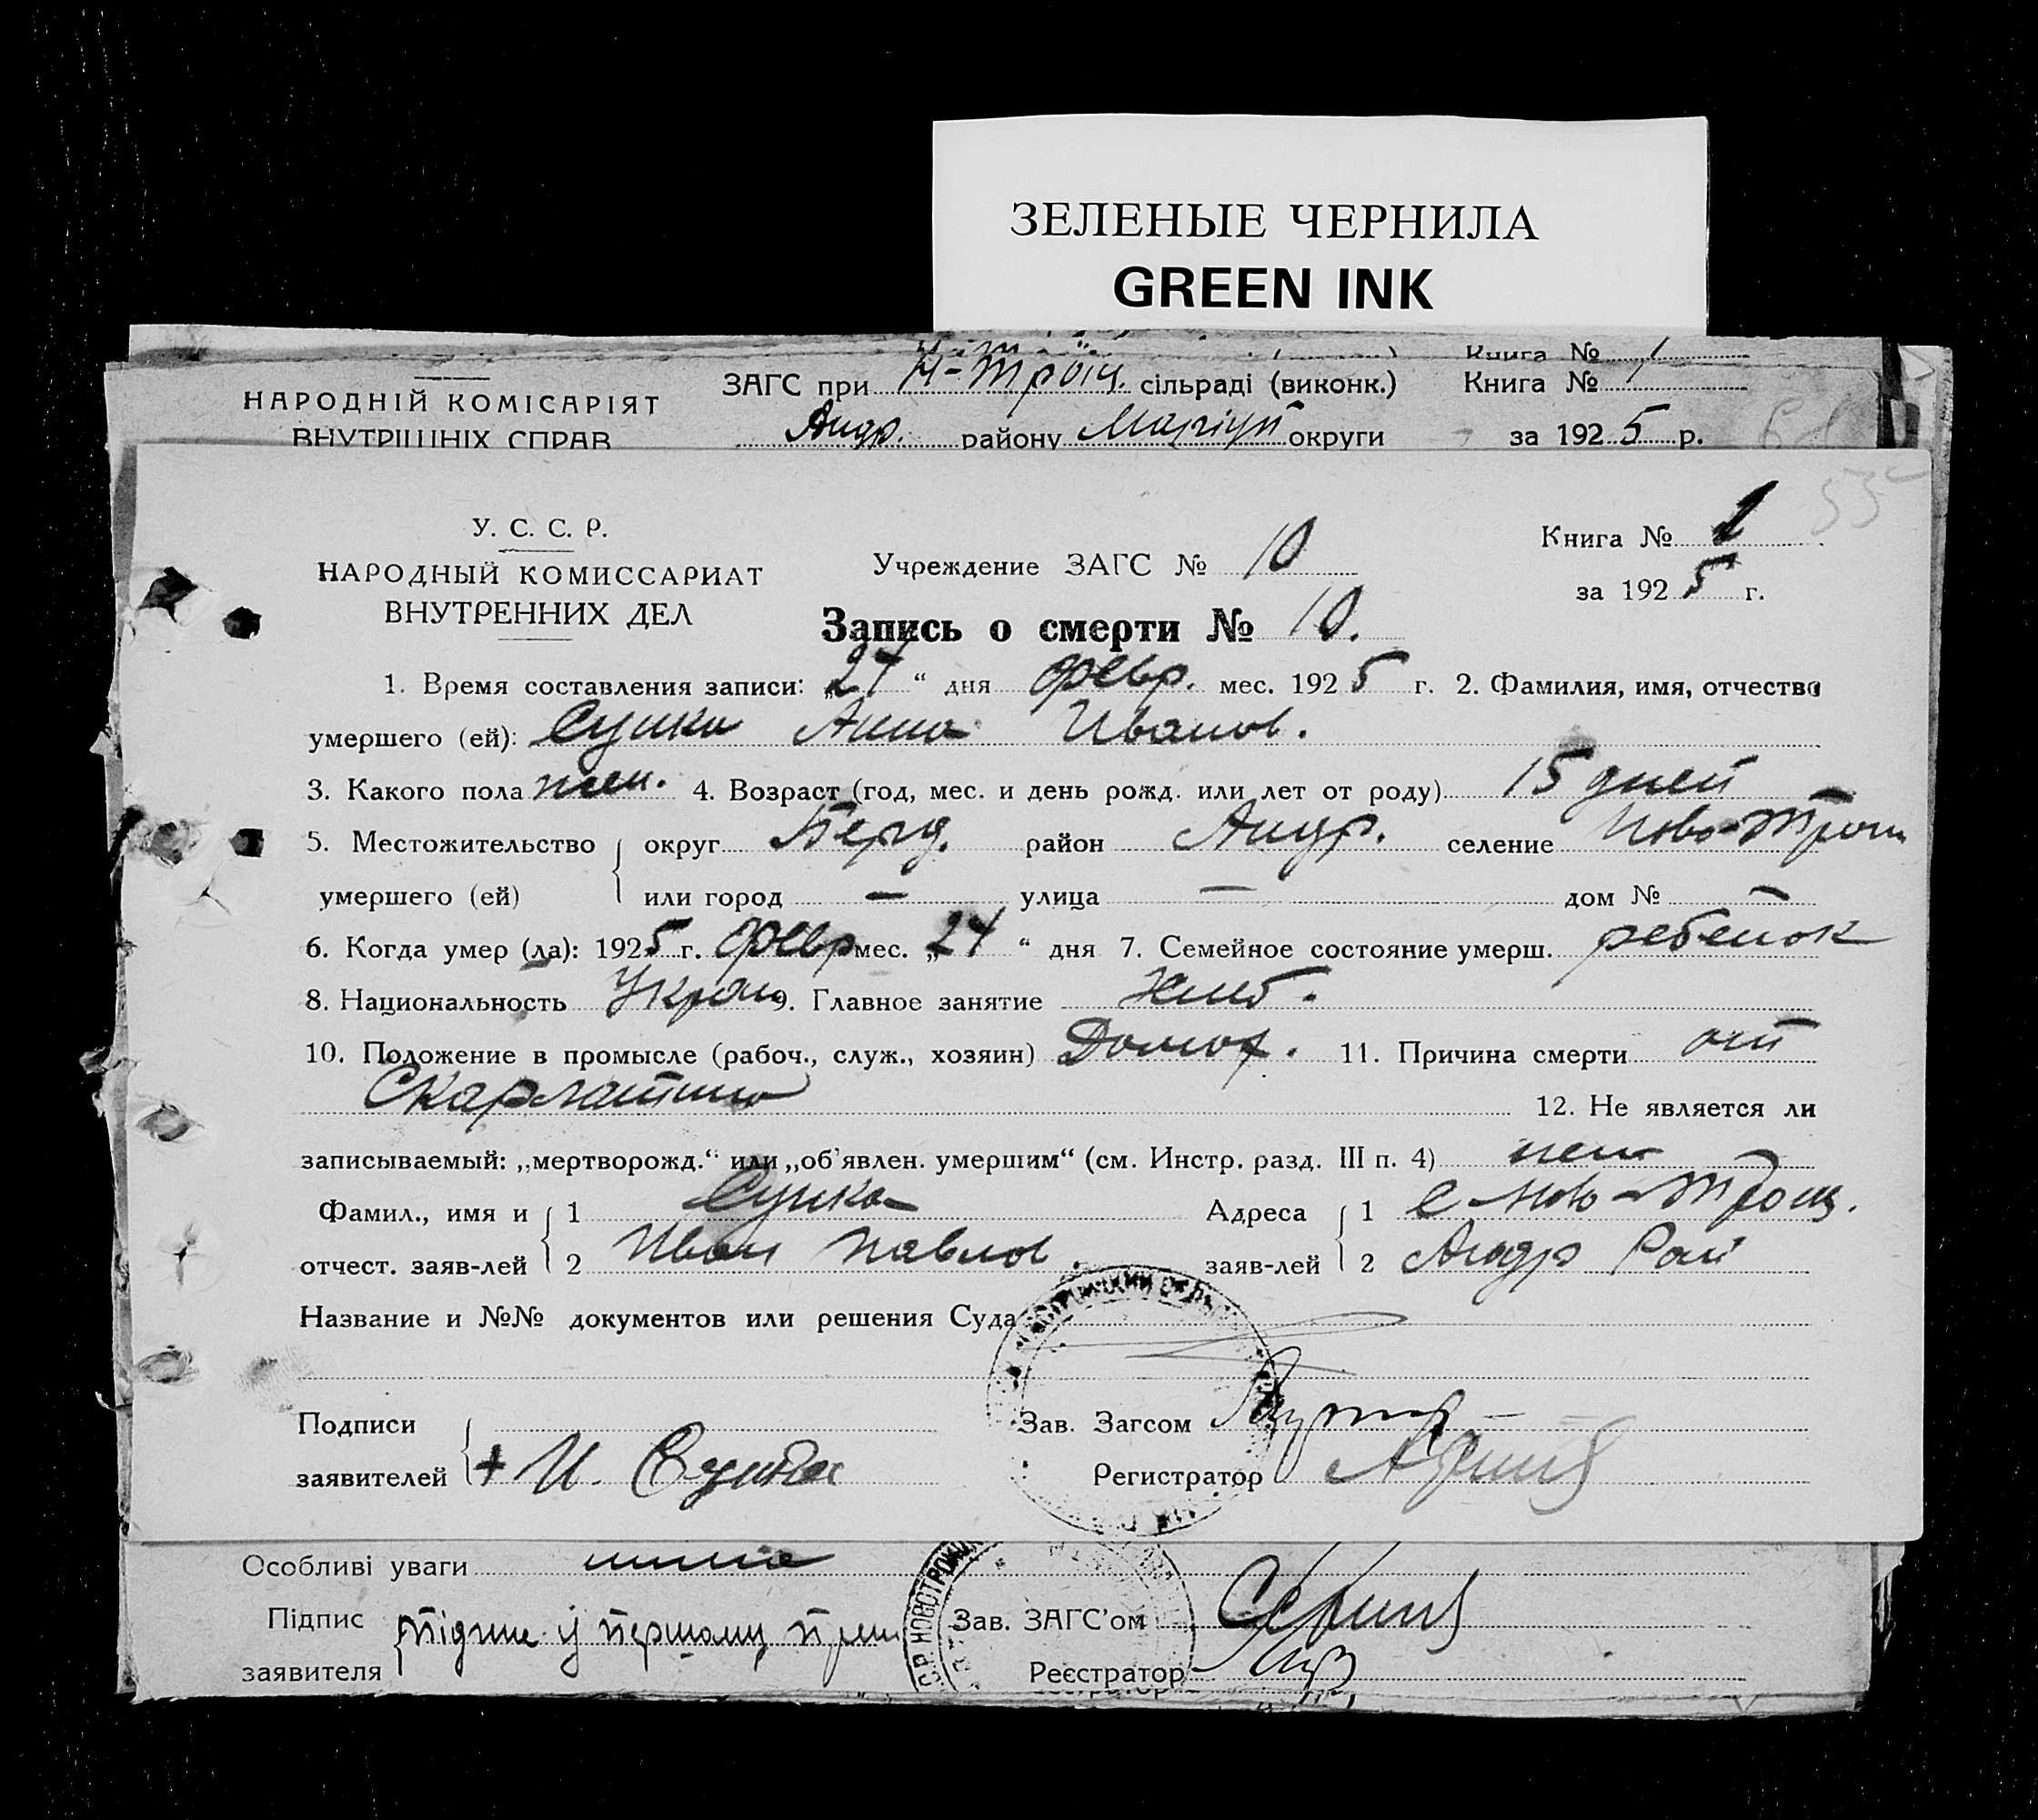 ЗЕЛЕНЫЕ ЧЕРНИЛА
GREEN INK
Книга № 1
НАРОДНІЙ КОМІСАРІЯТ
ВНУТРІШНІХ СПРАВ
ЗАГС при Н-Троіц. сільраді (виконк.) Книга № 1
Андр. району Маріуп округи за 1925 р.
55
У. С. С. Р.
НАРОДНЫЙ КОМИССАРИАТ
ВНУТРЕННИХ ДЕЛ
Учреждение ЗАГС № 10
Книга № 1
за 1925 г.
Запись о смерти № 10.
1. Время составления записи: „24“ дня февр. мес. 1925 г. 2. Фамилия, имя, отчество
умершего (ей): Сушко Анна Иванов.
3. Какого пола жен. 4. Возраст (год, мес. и день рожд. или лет от роду) 15 дней
5. Местожительство округ Берд. район Андр. селение Ново-Троиц
умершего (ей) или город — улица — дом № —
6. Когда умер (ла): 1925 г. февр мес. „24“ дня 7. Семейное состояние умерш. ребенок
8. Национальность Украин 9. Главное занятие Хлеб.
10. Положение в промысле (рабоч., служ., хозяин) Домох. 11. Причина смерти от
Скарлатины
12. Не является ли
записываемый: „мертворожд.“ или „об'явлен. умершим“ (см. Инстр. разд. III п. 4) нет
Фамил., имя и 1 Сушко Адреса 1 с Ново-Троиц.
отчест. заяв-лей 2 Иван Павлов. заяв-лей 2 Андр Рай
Название и №№ документов или решения Суда
Подписи Зав. Загсом
заявителей + И. Сушко Регистратор
Особливі уваги нима
Підпис Підпис у першому прим Зав. ЗАГС'ом
заявителя Реєстратор